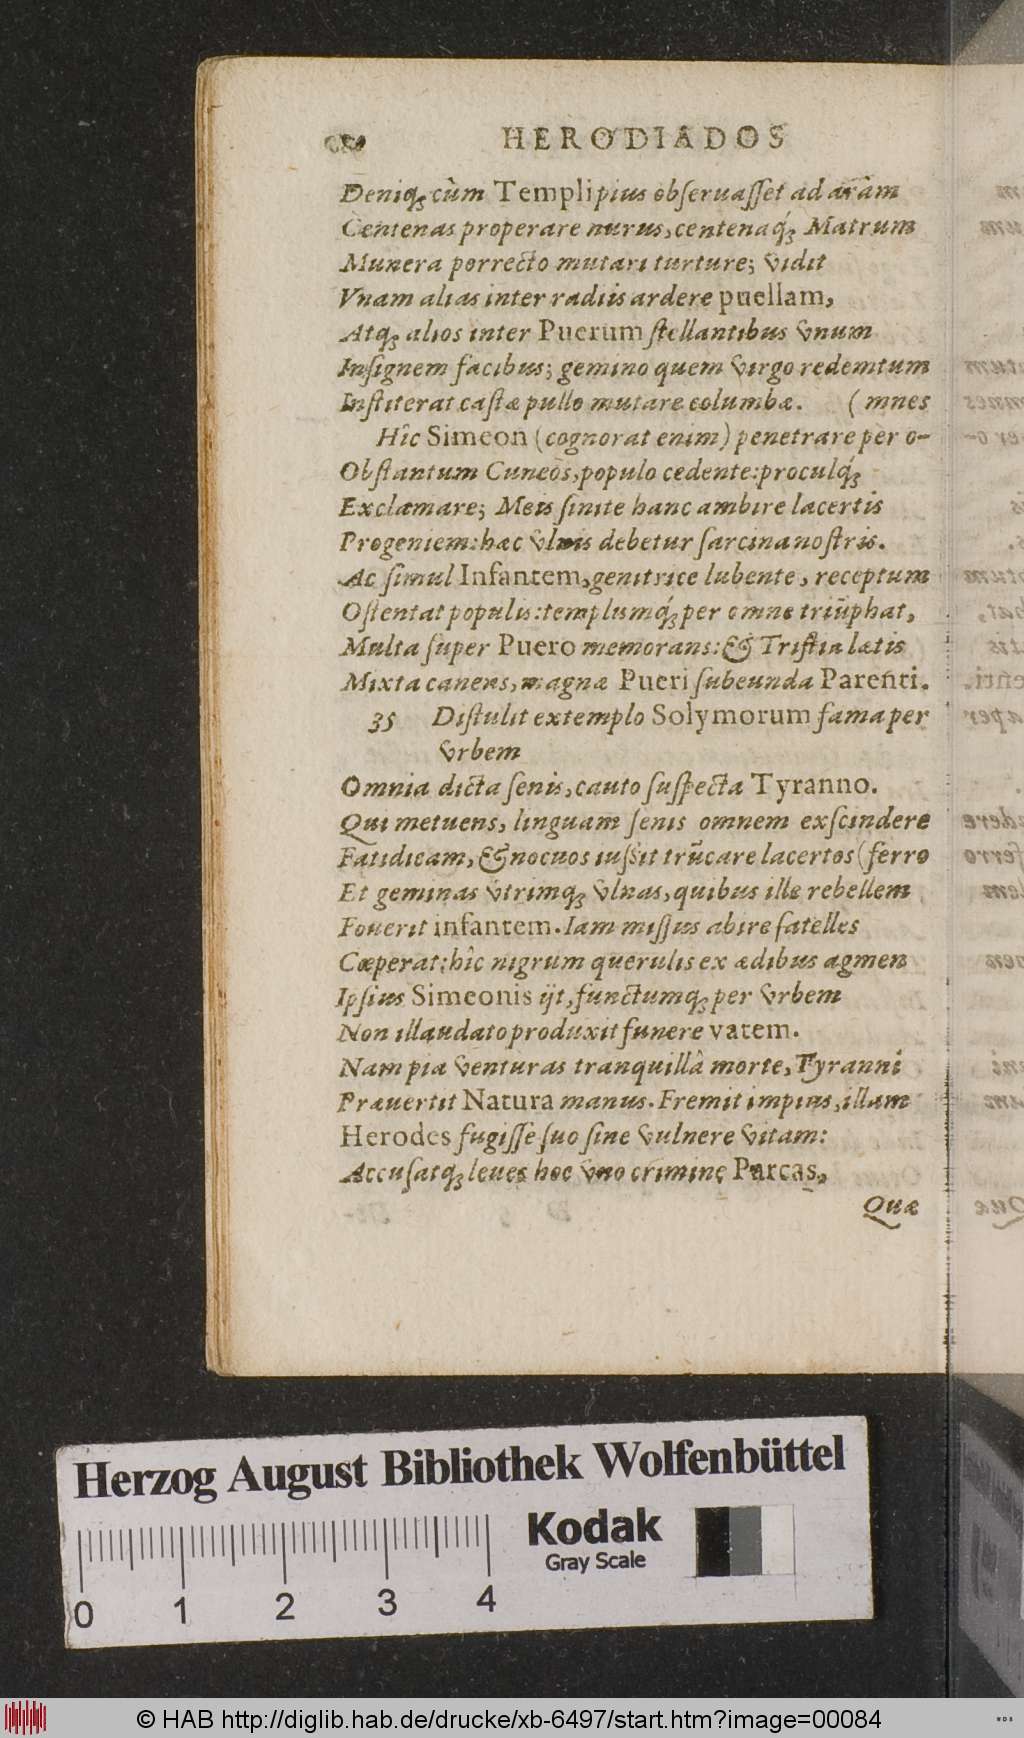 HERODIADOS
Deniq́; cùm Templi pius obseruasset ad aràm
Centenas properare nurus, centenaq́; Matrum
Munera porrecto mutari turture; vidit
Vnam alias inter radiis ardere puellam,
Atq; alios inter Puerum stellantibus vnum
Insignem facibus; gemino quem virgo redemtum
Institerat castæ pullo mutare columbæ. (mnes
Hîc Simeon (cognorat enim) penetrare per o-
Obstantum Cuneos, populo cedente: proculq́;
Exclamare; Meis sinite hanc ambire lacertis
Progeniem: hæc vlnis debetur sarcina nostris.
Ac simul Infantem, genitrice lubente, receptum
Ostentat populis: templumq́; per omne triũphat,
Multa super Puero memorans: & Tristia lætis
Mixta canens, magnæ Pueri subeunda Parenti.
35 Distulit extemplo Solymorum fama per
vrbem
Omnia dicta senis, cauto suspecta Tyranno.
Qui metuens, linguam senis omnem exscindere
Fatidicam, & nocuos iussit trũcare lacertos (ferro
Et geminas vtrimq; vlnas, quibus ille rebellem
Fouerit infantem. Iam missus abire satelles
Cœperat: hîc nigrum querulis ex ædibus agmen
Ipsius Simeonis ijt, functumq; per vrbem
Non illaudato produxit funere vatem.
Nam pia venturas tranquillâ morte, Tyranni
Præuertit Natura manus. Fremit impius, illam
Herodes fugisse suo sine vulnere vitam:
Accusatq; leues hoc vno crimine Parcas,
Quæ
Herzog August Bibliothek Wolfenbüttel
Kodak
Gray Scale
0 1 2 3 4
© HAB http://diglib.hab.de/drucke/xb-6497/start.htm?image=00084